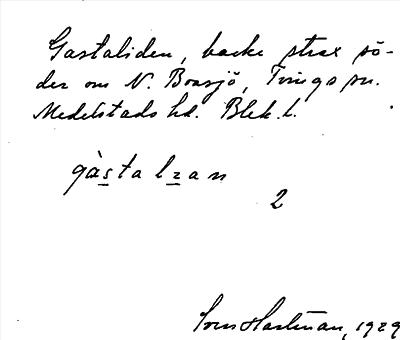 Gastaliden, backe strax sö-
der om N. Boasjö, Tvings sn.
Medelstads hd. Blek. l.
gàstalzan
2
Sven Hartman, 1929